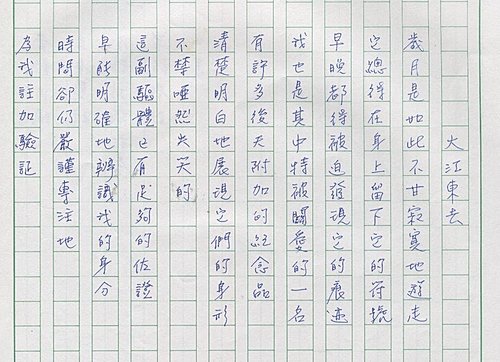 大江東去
歲月是如此不甘寂寞地遊走
它總得在身上留下它的符號
早晚都得被迫發現它的痕迹
我也是其中特被關愛的一名
有許多後天附加的紀念品
清楚明白地展現它們的身形
不禁啞然失笑的
這副軀體已有足夠的佐證
早能明確地辨識我的身分
時間卻仍嚴謹專注地
為我註加驗証